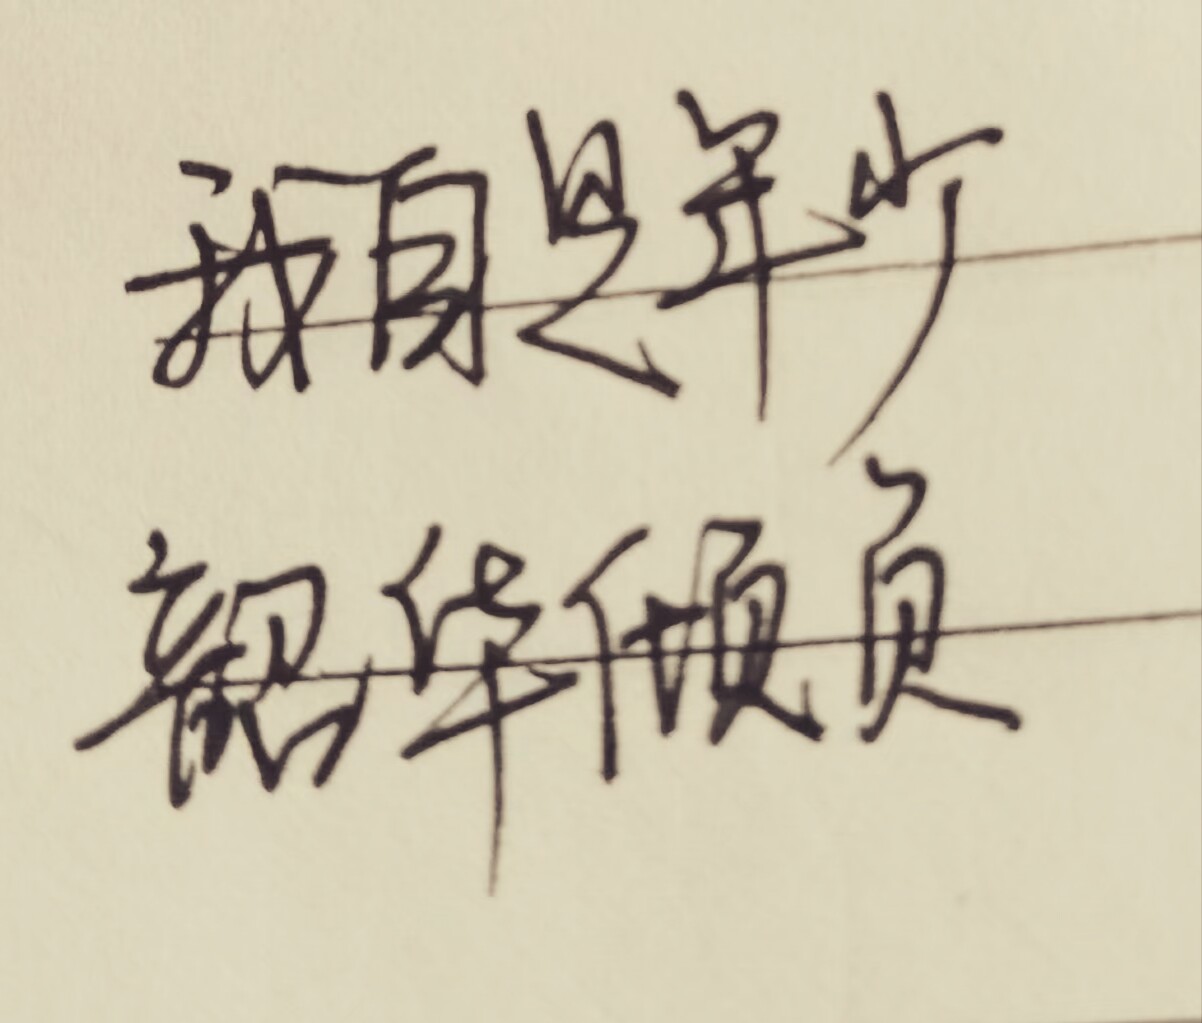 我自是年少
韶华倾负